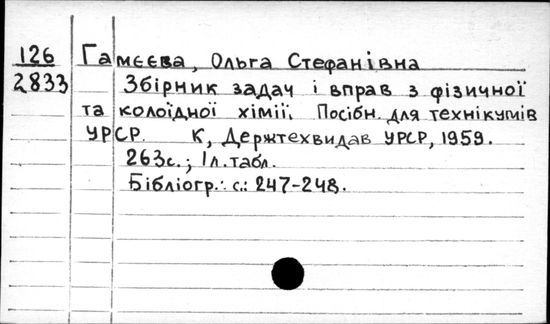 126 Гамєєва, Ольга Стефанівна
2833 Збірник задач і вправ з фізичної
та колоїдної хімії. Посібн. для технікумів
УРСР. К, Держтехвидав УРСР, 1959.
263с.; 1л. табл.
Бібліогр.: с.: 247-248.